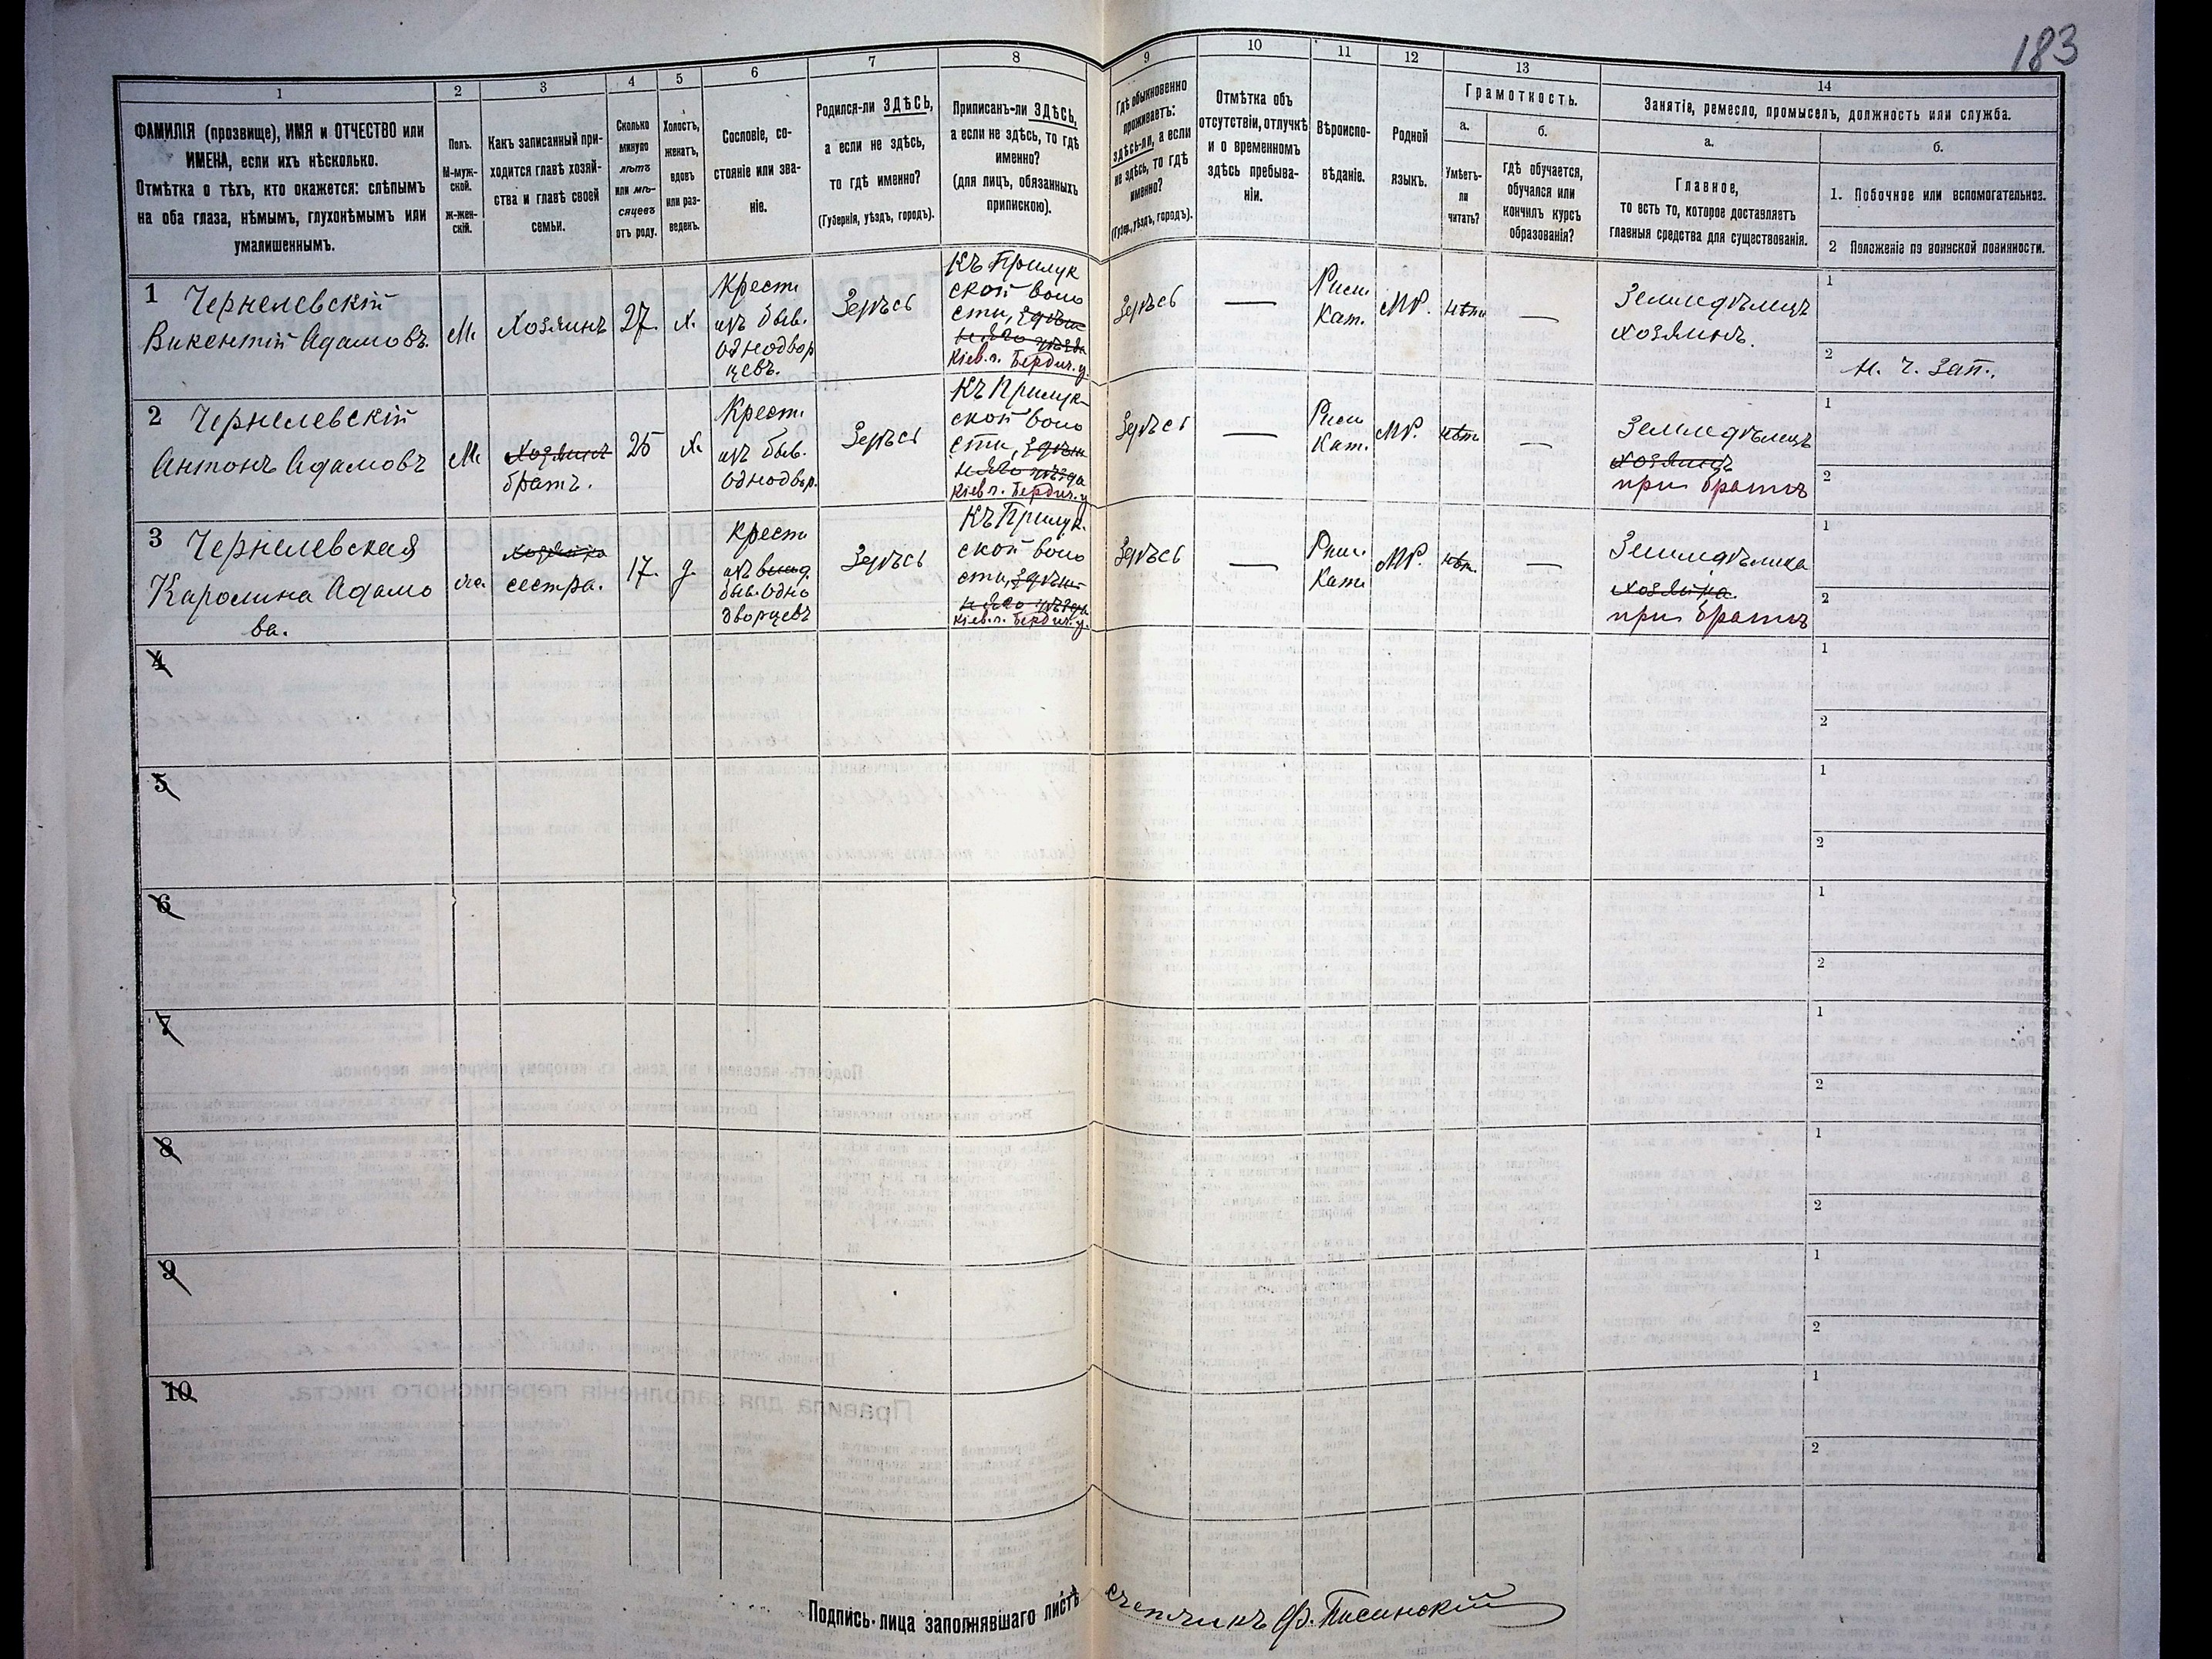 183
1
2
3
4
5
6
7
8
9
10
11
12
13
14
ФАМИЛІЯ (прозвище), ИМЯ и ОТЧЕСТВО или
ИМЕНА, если ихъ нѣсколько.
Отмѣтка о тѣхъ, кто окажется: слѣпымъ
на оба глаза, нѣмымъ, глухонѣмымъ или
умалишеннымъ.
Полъ.
М-муж-
ской.
ж-жен-
скій.
Какъ записанный при-
ходится главѣ хозяй-
ства и главѣ своей
семьи.
Сколько
минуло
лѣтъ
или мѣ-
сяцевъ
отъ роду.
Холостъ,
женатъ,
вдовъ
или раз-
веденъ.
Сословіе, со-
стояніе или зва-
ніе.
Родился-ли ЗДѢСЬ,
а если не здѣсь,
то гдѣ именно?
(Губернія, уѣздъ, городъ).
Приписанъ-ли ЗДѢСЬ,
а если не здѣсь, то гдѣ
именно?
(для лицъ, обязанныхъ
припискою).
Гдѣ обыкновенно
проживаетъ:
здѣсь-ли, а если
не здѣсь, то гдѣ
именно?
(Губерн., уѣздъ, городъ).
Отмѣтка объ
отсутствіи, отлучкѣ
и о временномъ
здѣсь пребыва-
ніи.
Вѣроиспо-
вѣданіе.
Родной
языкъ.
Грамотность.
а.
Умѣетъ-
ли
читать?
б.
гдѣ обучается,
обучался или
кончилъ курсъ
образованія?
Занятіе, ремесло, промыселъ, должность или служба.
а.
Главное,
то есть то, которое доставляетъ
главныя средства для существованія.
б.
1. Побочное или вспомогательное.
2 Положеніе по воинской повинности.
1 Чернелевскій
Викентій Адамовъ.
М.
Хозяинъ
27.
х.
Крест.
изъ быв.
однодвор
цевъ.
Здѣсь
Къ Прилук
ской воло
сти,
Кіев. г. Бердич. у.
Здѣсь
—
Рим.
Кат.
МР.
нѣтъ
—
Земледѣлецъ
хозяинъ.
1
2 Н. Ч. Зап.
2 Чернелевскій
Антонъ Адамовъ
М.
Хозяинъ
братъ.
25
х.
Крест.
изъ быв.
однодвор.
Здѣсь
Къ Прилук-
ской воло
сти,
Кіев г. Бердич. у
Здѣсь
—
Рим
Кат.
МР.
нѣтъ
—
Земледѣлецъ
хозяинъ
при братѣ
1
2
3 Чернелевская
Каролина Адамо
ва.
хозяйка
сестра.
17.
д.
Крест
изъ
быв. одно
дворцевъ
Здѣсь
Къ Прилук.
ской воло
сти,
Кіев. г. Бердич. у.
Здѣсь
—
Рим.
Кат.
МР.
нѣт.
—
Земледѣлка
хозяйка.
при братѣ
1
2
4
1
2
5
1
2
6
1
2
7
1
2
8
1
2
9
1
2
10
1
2
Подпись лица заполнявшаго листъ счетчикъ Ф.